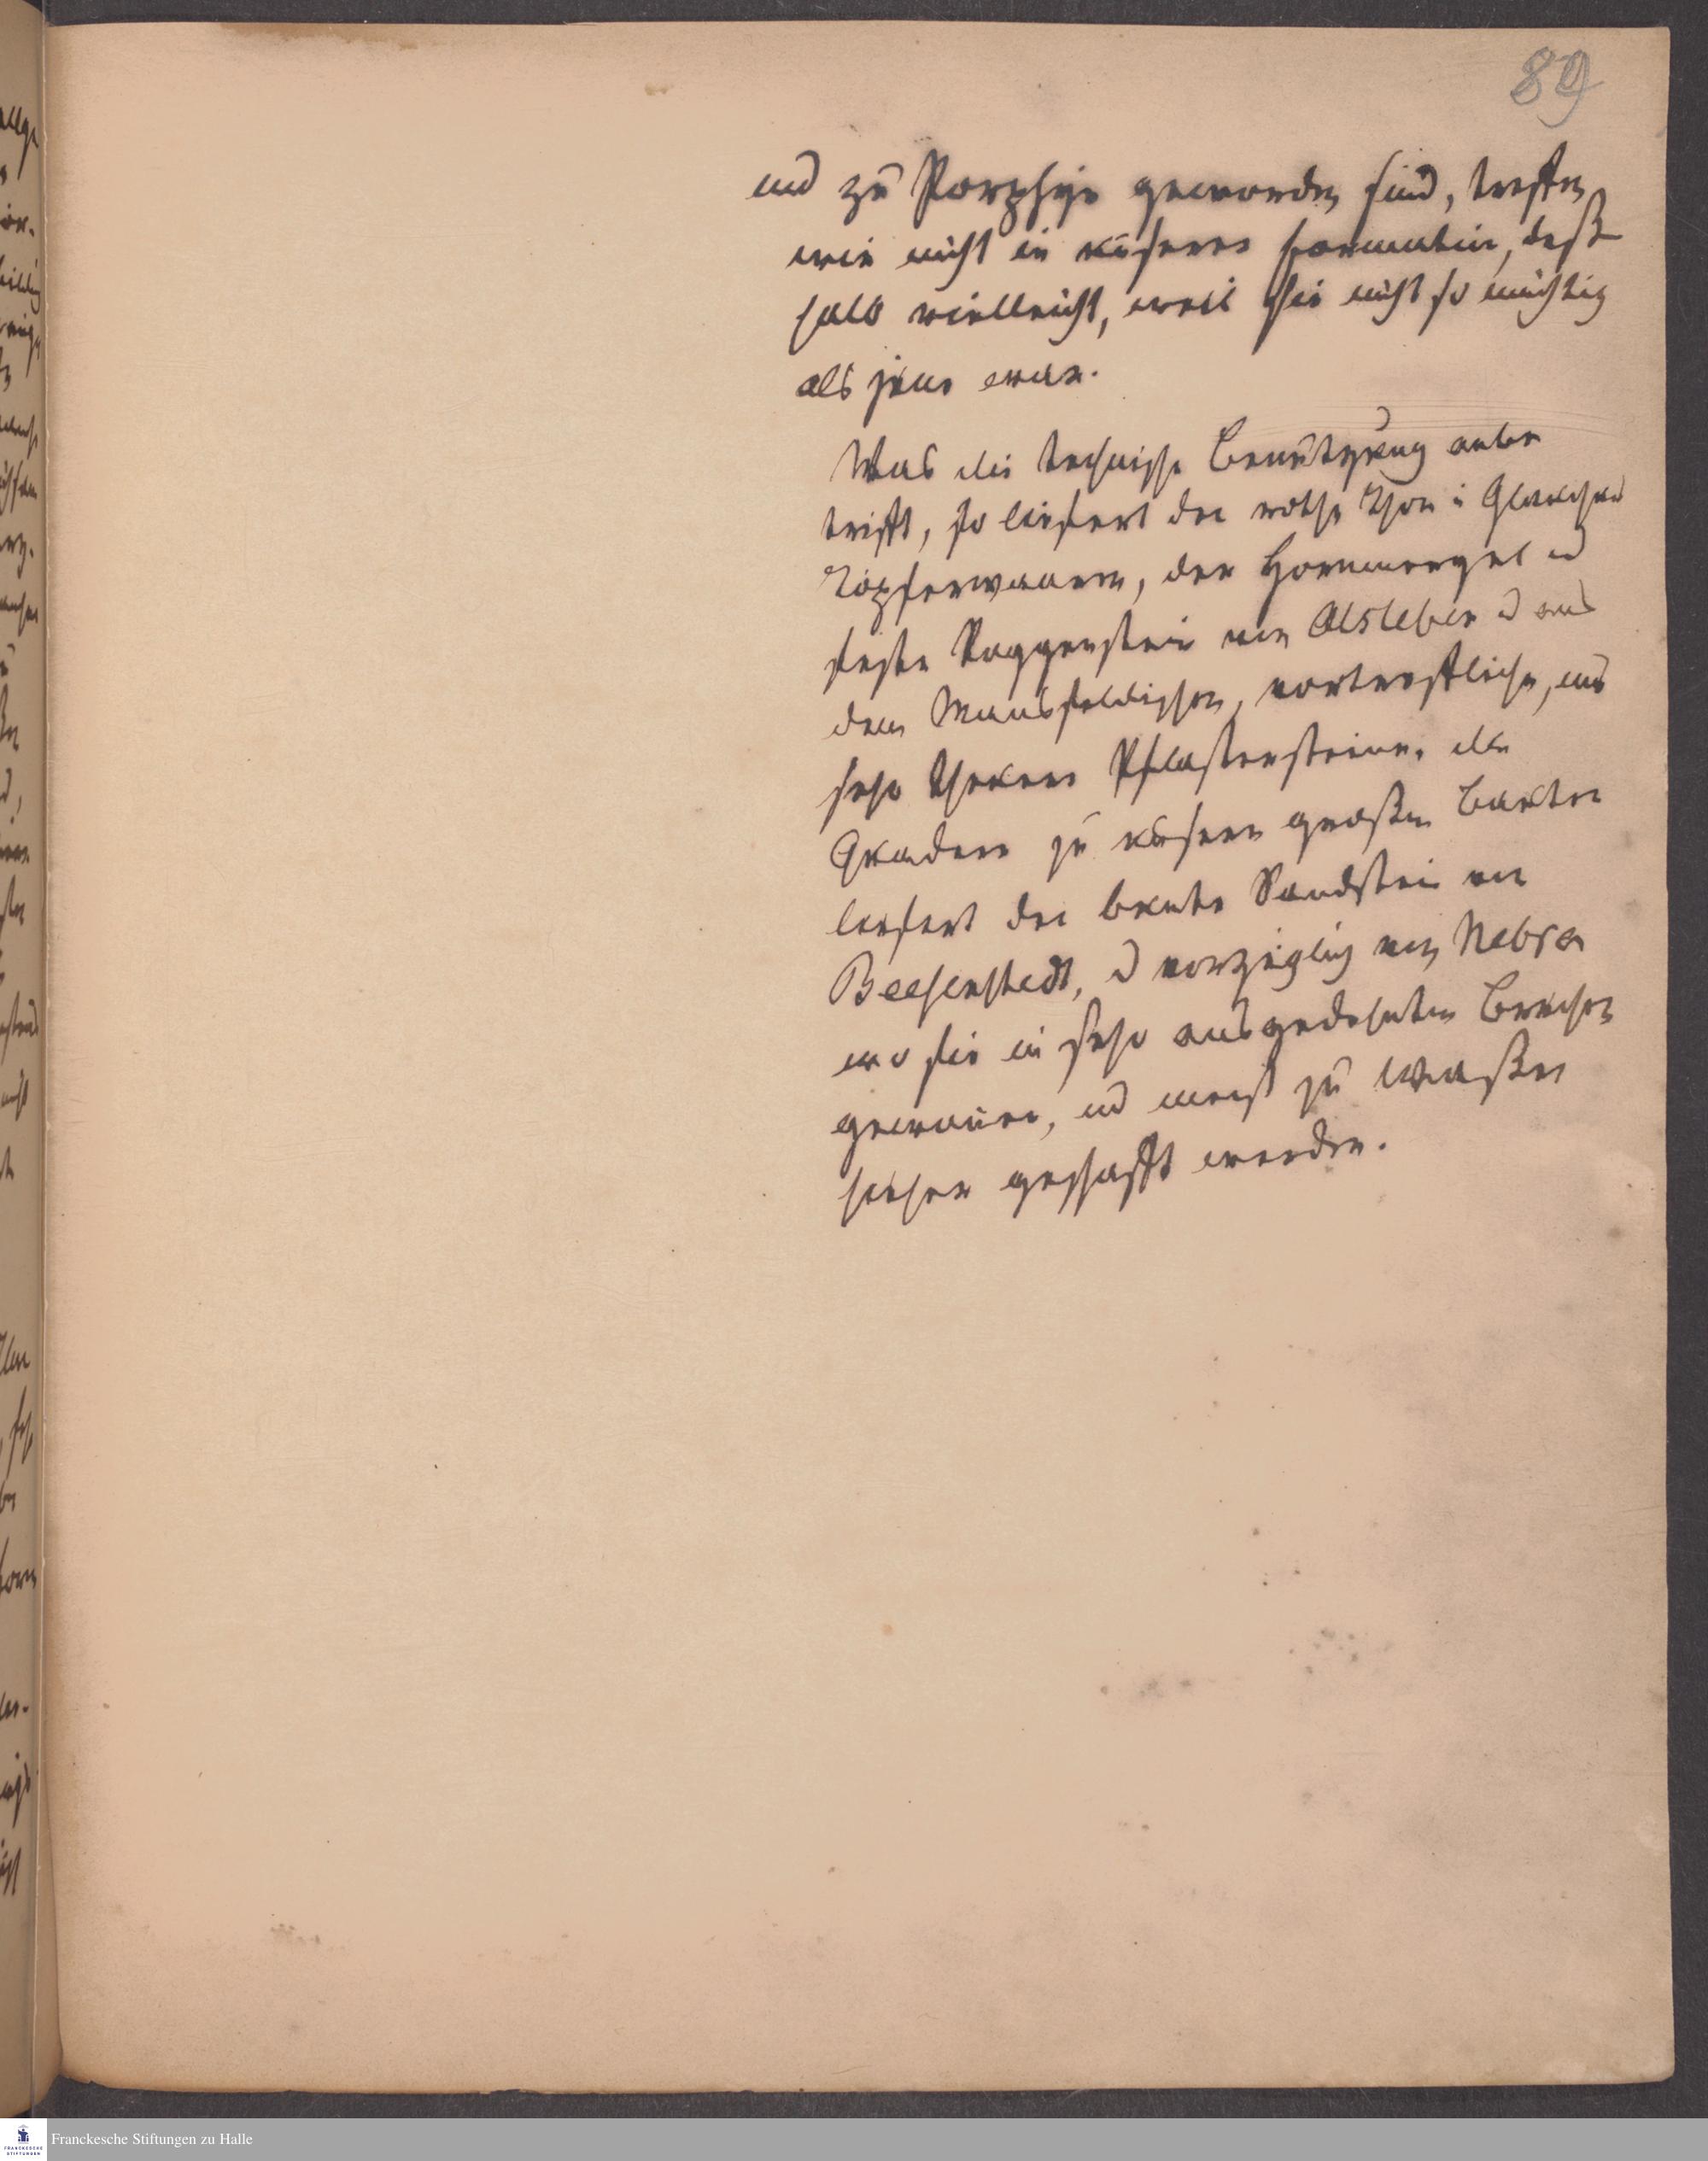 89
und zu Porphyr geworden sind, treffen
wir nicht in unserer Formation, deß
halb vielleicht, weil sie nicht so mächtig
als jene war.
Was die technische Benutzung anbe
trifft, so liefert der rothe Thon in Glaucha
Töpferwaaren, der Hornmergel u
feste Roggenstein von Alsleben u aus
dem Mansfeldischen, vortreffliche, und
sehr theure Pflastersteine. die
Quadern zu unsern großen Bauten
liefert der bunte Sandstein von
Beesenstedt, u vorzüglich von Nebra
wo sie in sehr ausgedehnten Brüchen
gewonnen, und meist zu Wasser
hieher geschafft werden.
Franckesche Stiftungen zu Halle